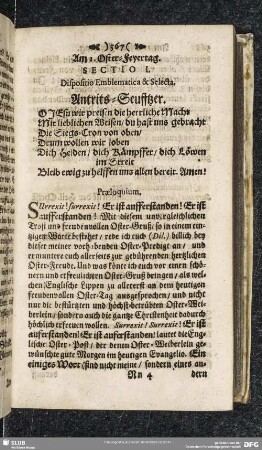 )567(
Am 1. Oster-Feyertag.
SECTIO I.
Dispositio Emblematica & Selecta.
Antrits-Seufftzer.
O JEsu wir preisen die herrliche Mach
Mit lieblichen Weisen/ du hast uns gebracht
Die Siegs-Cron von oben/
Drum wollen wir loben
Dich Helden/ dich Kämpffer/ dich Löwen
im Streit
Bleib ewig zu helffen uns allen bereit. Amen!
Præloquium.
Surrexit! surrexit! Er ist aufferstanden! Er ist
aufferstanden! Mit diesem unvergleichlichen
Trost und freudenvollen Oster-Gruß/ so in einem ein-
zigen Wort bestehet/ rede ich euch (Dil.) billich bey
dieser meiner vorhabenden Oster-Predigt an/ und
ermuntere euch allerseits zur gebührenden hertzlichen
Oster-Freude. Und was könte ich euch vor einen schö-
nern und erfreulichern Oster-Gruß bringen/ als wel-
chen Englische Lippen zu allererst an dem heutigen
freudenvollen Oster-Tag ausgesprochen/ und nicht
nur die bestürtzten und höchst-betrübten Oster-Wei-
berlein/ sondern auch die gantze Christenheit dadurch
höchlich erfreuen wollen. Surrexit! Surrexit! Er ist
aufferstanden! Er ist aufferstanden! lautet die Engli-
sche Oster-Post/ der denen Oster-Weiberlein ge-
wünschte gute Morgen im heutigen Evangelio. Ein
einiges Wort (sind nicht meine/ sondern eines an-
Nn 4
dern
SLUB
DFG